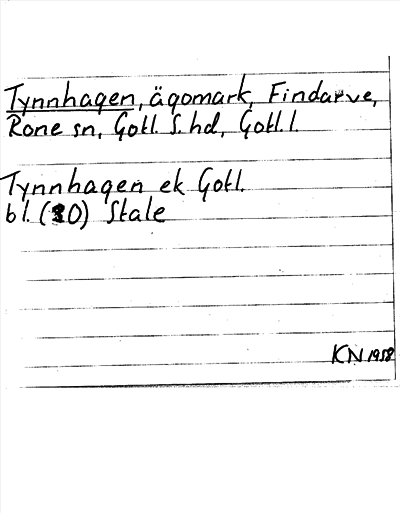 Tynnhagen, ägomark, Findarve,
Rone sn, Gotl. S. hd, Gotl. l.
Tynnhagen ek Gotl.
bl. (30) Stale
KN 1958